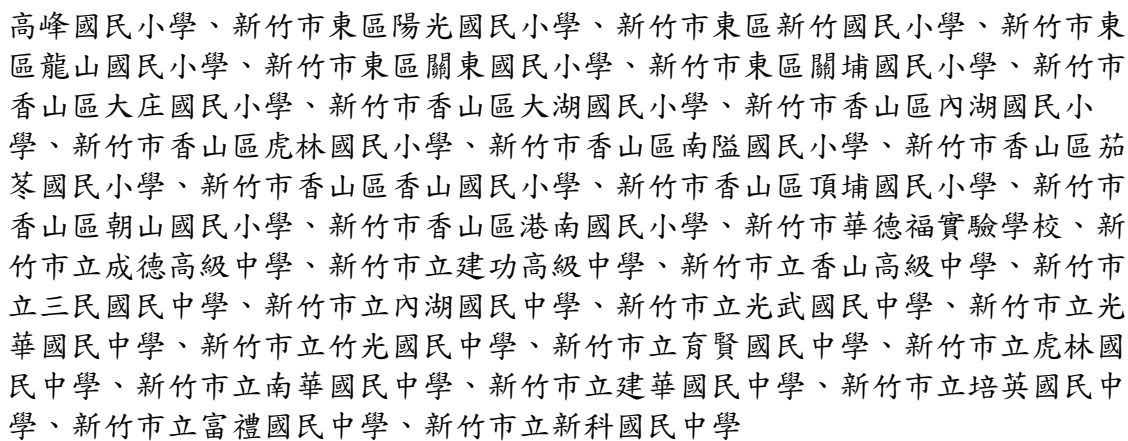 高峰國民小學、新竹市東區陽光國民小學、新竹市東區新竹國民小學、新竹市東
區龍山國民小學、新竹市東區關東國民小學、新竹市東區關埔國民小學、新竹市
香山區大庄國民小學、新竹市香山區大湖國民小學、新竹市香山區內湖國民小
學、新竹市香山區虎林國民小學、新竹市香山區南隘國民小學、新竹市香山區茄
苳國民小學、新竹市香山區香山國民小學、新竹市香山區頂埔國民小學、新竹市
香山區朝山國民小學、新竹市香山區港南國民小學、新竹市華德福實驗學校、新
竹市立成德高級中學、新竹市立建功高級中學、新竹市立香山高級中學、新竹市
立三民國民中學、新竹市立內湖國民中學、新竹市立光武國民中學、新竹市立光
華國民中學、新竹市立竹光國民中學、新竹市立育賢國民中學、新竹市立虎林國
民中學、新竹市立南華國民中學、新竹市立建華國民中學、新竹市立培英國民中
學、新竹市立富禮國民中學、新竹市立新科國民中學